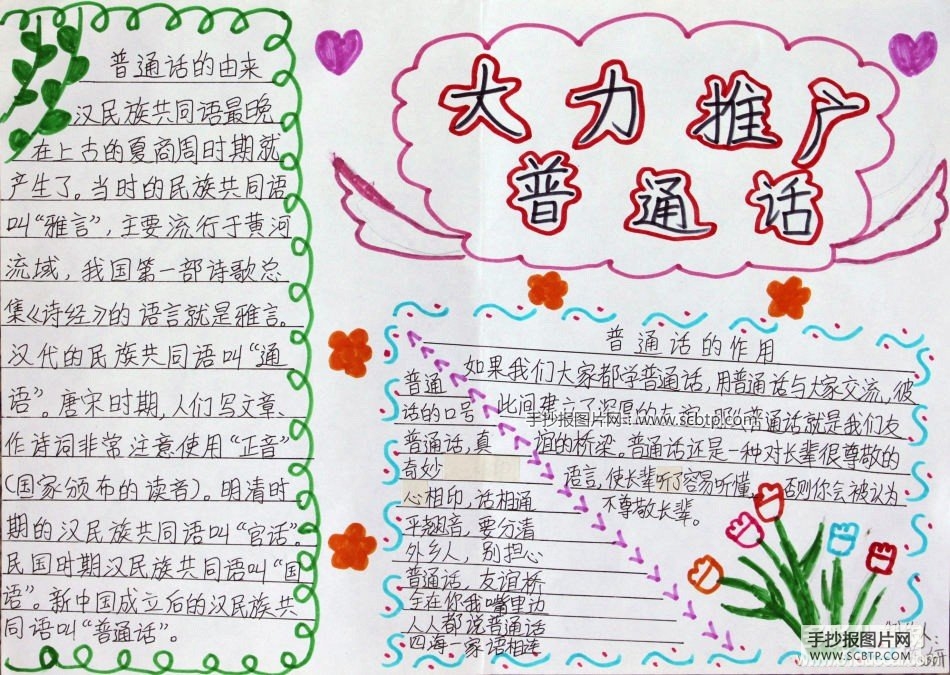 大力推广
普通话
普通话的由来
汉民族共同语最晚
在上古的夏商周时期就
产生了。当时的民族共同语
叫“雅言”,主要流行于黄河
流域,我国第一部诗歌总
集《诗经》的语言就是雅言。
汉代的民族共同语叫“通
语”。唐宋时期,人们写文章、
作诗词非常注意使用“正音”
(国家颁布的读音)。明清时
期的汉民族共同语叫“官话”。
民国时期汉民族共同语叫“国
语”。新中国成立后的汉民族共
同语叫“普通话”。
普通话的作用
如果我们大家都学普通话,用普通话与大家交流,彼
此间建立了深厚的友谊,那么普通话就是我们友
谊的桥梁。普通话还是一种对长辈很尊敬的
语言,使长辈听了容易听懂,否则你会被认为
不尊敬长辈。
普通
话的口号
普通话,真
奇妙
心相印,话相通
平翘音,要分清
外乡人,别担心
普通话,友谊桥
全在你我嘴里边
人人都说普通话
四海一家语相连
手抄报图片网:www.scbtp.com
手抄报图片网
WWW.SCBTP.COM